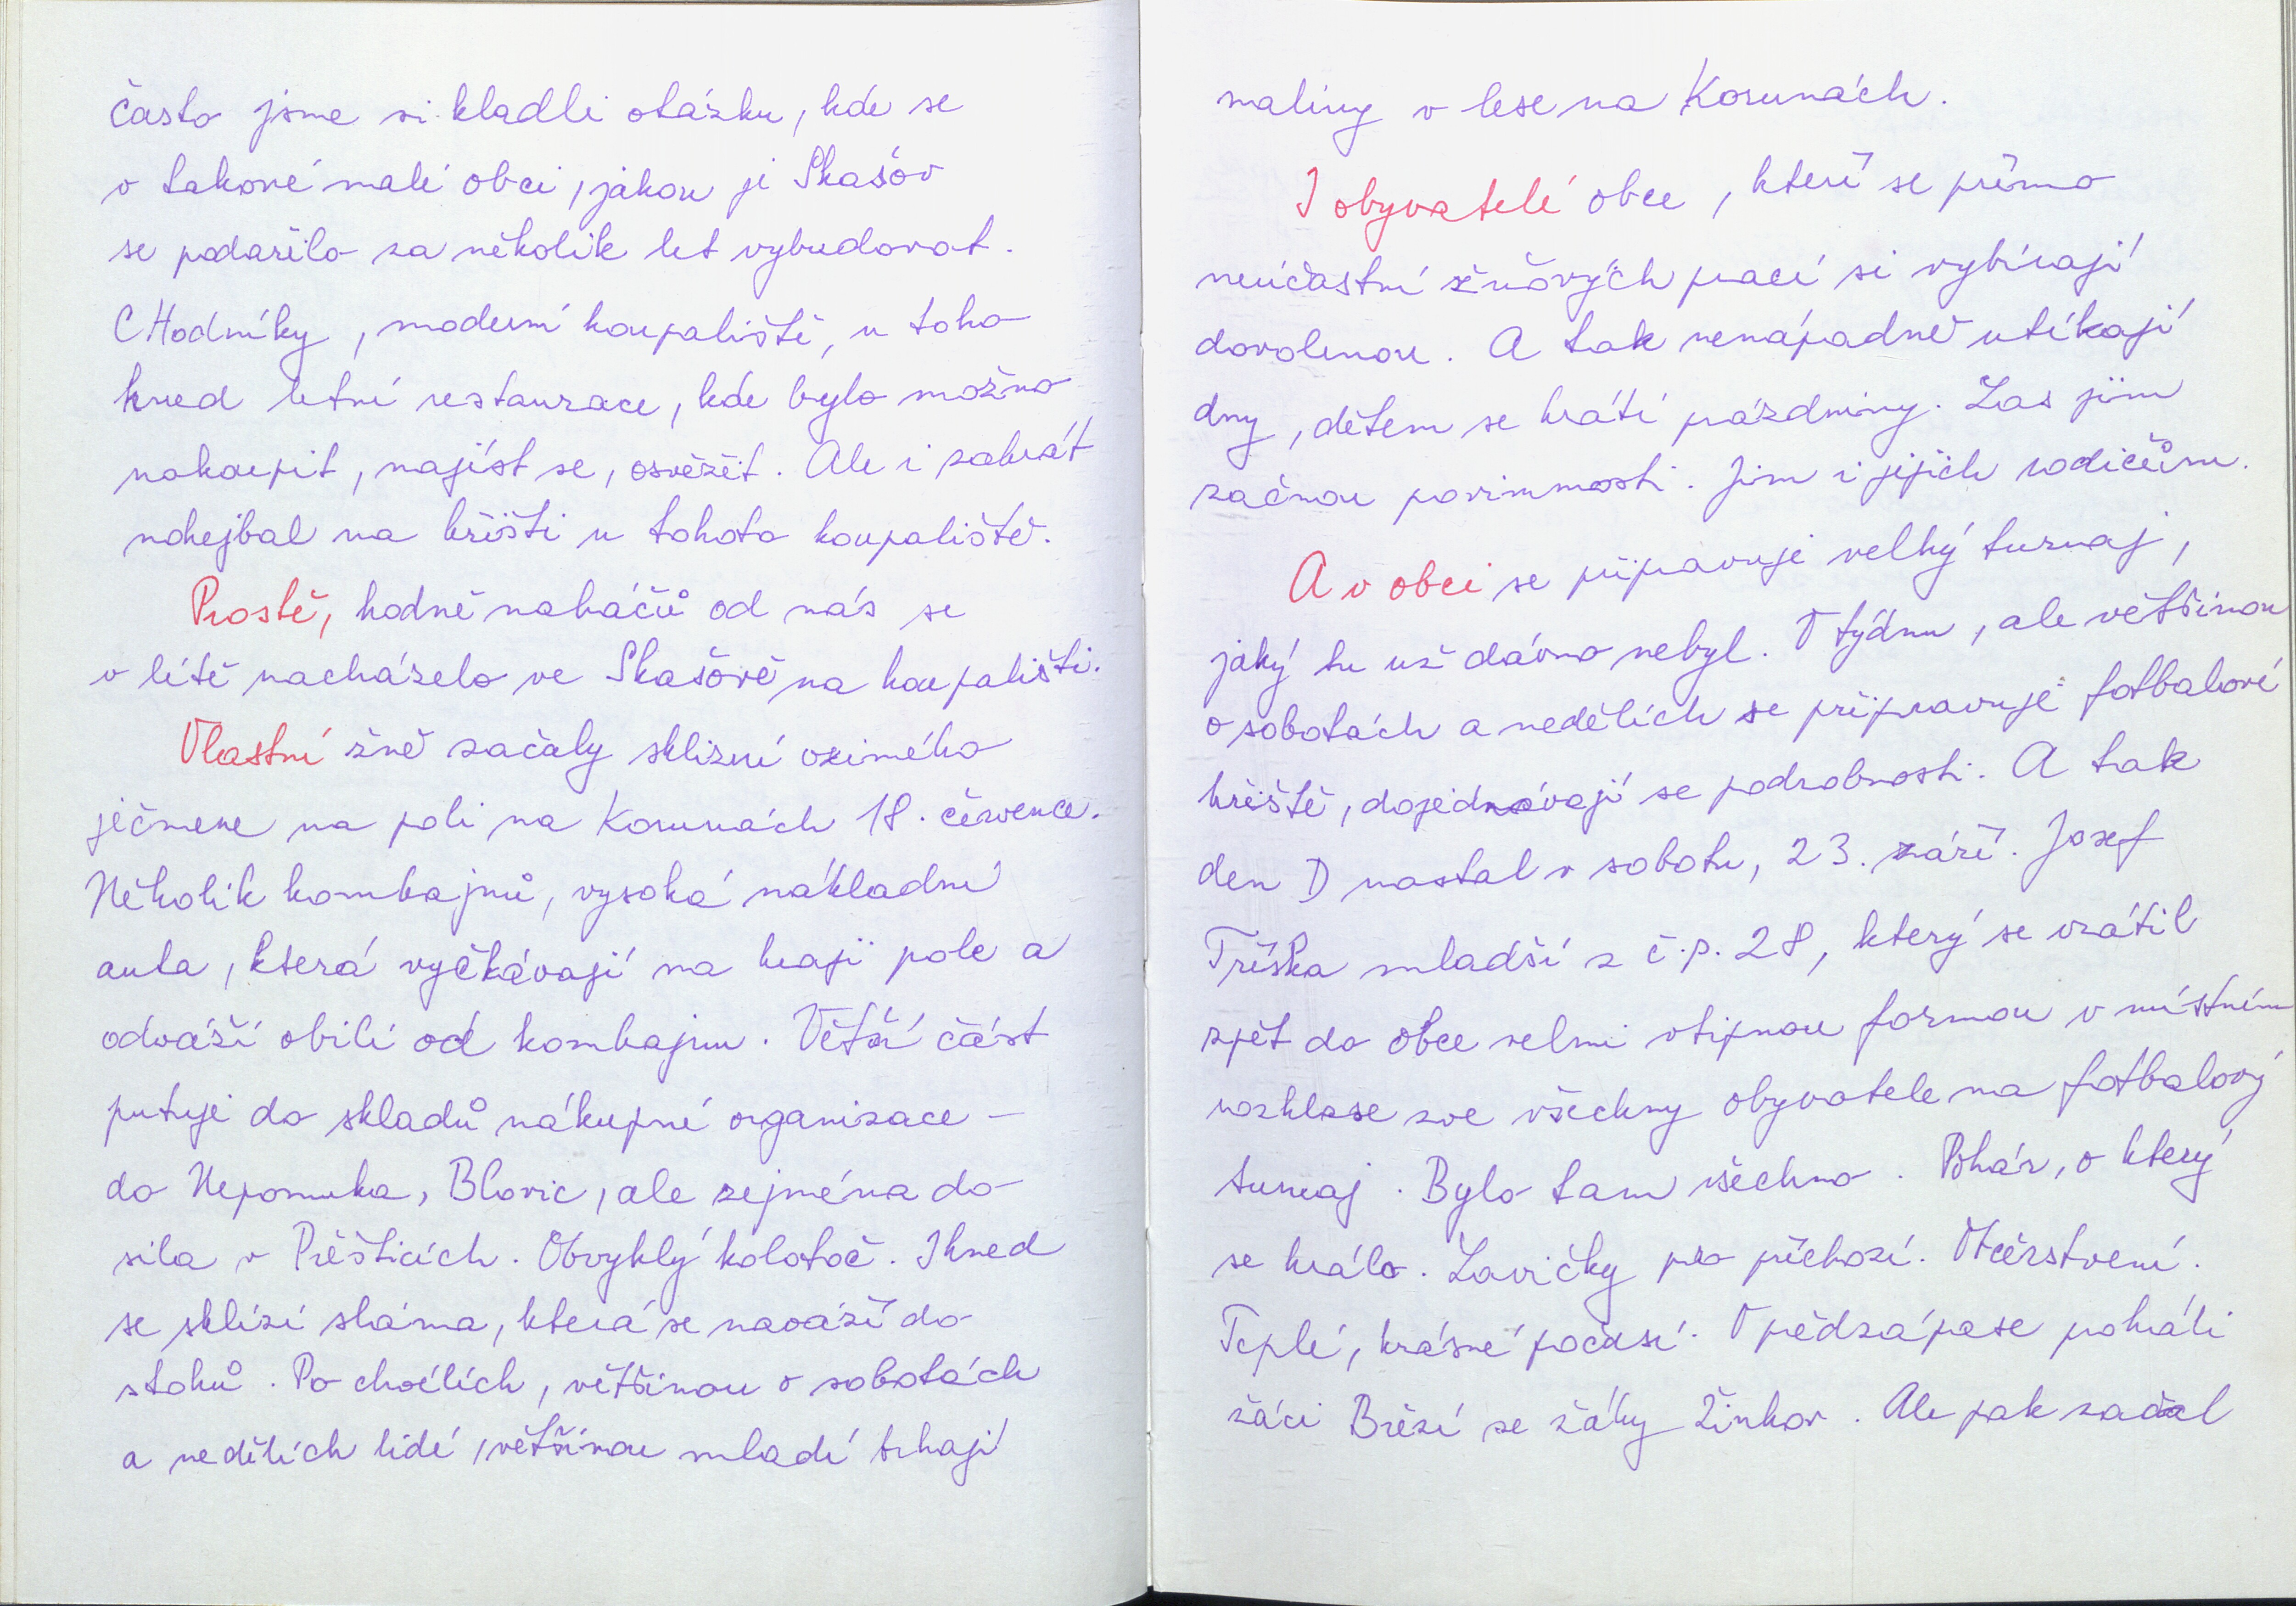 často jsme si kladli otázku, kde se
v takové malé obci, jakou je Skašov
se podařilo za několik let vybudovat.
CHodníky, moderní koupaliště, u toho
hned letní restaurace, kde bylo možno
nakoupit, najíst se, osvěžit. Ale i zahrát
nohejbal na hřišti u tohoto koupaliště.
Prostě, hodně naháčů od nás se
v létě nacházelo ve Skašově na koupališti.
Vlastní žně začaly sklizní ozimého
ječmene na poli na Korunách 18. července.
Několik kombajnů, vysoká nákladní
auta, která vyčkávají na kraji pole a
odváží obilí od kombajnu. Větší část
putuje do skladů nákupné organizace -
do Nepomuka, Blovic, ale zejména do
sila v Přešticích. Obvyklý kolotoč. Ihned
se sklízí sláma, která se naváží do
stohů. Po chvílích, většinou o sobotách
a nedělích lidé, většinou mladí trhají
maliny v lese na Korunách.
I obyvatelé obce, kteří se přímo
neúčastní žňových prací si vybírají
dovolenou. A tak nenápadně utíkají
dny, dětem se krátí prázdniny. Zas jim
začnou povinnosti. Jim i jejich rodičům.
A v obci se připravuje velký turnaj,
jaký tu už dávno nebyl. V týdnu, ale většinou
o sobotách a nedělích se připravuje fotbalové
hřiště, dojednávají se podrobnosti. A tak
den D nastal v sobotu, 23. září. Josef
Tříska mladší z č.p. 28, který se vrátil
zpět do obce velmi vtipnou formou v místním
rozhlase zve všechny obyvatele na fotbalový
turnaj. Bylo tam všechno. Pohár, o který
se hrálo. Lavičky pro příchozí. Občerstvení.
Teplé, krásné počasí. V předzápase pohráli
žáci Březí se žáky Žinkov. Ale pak začal